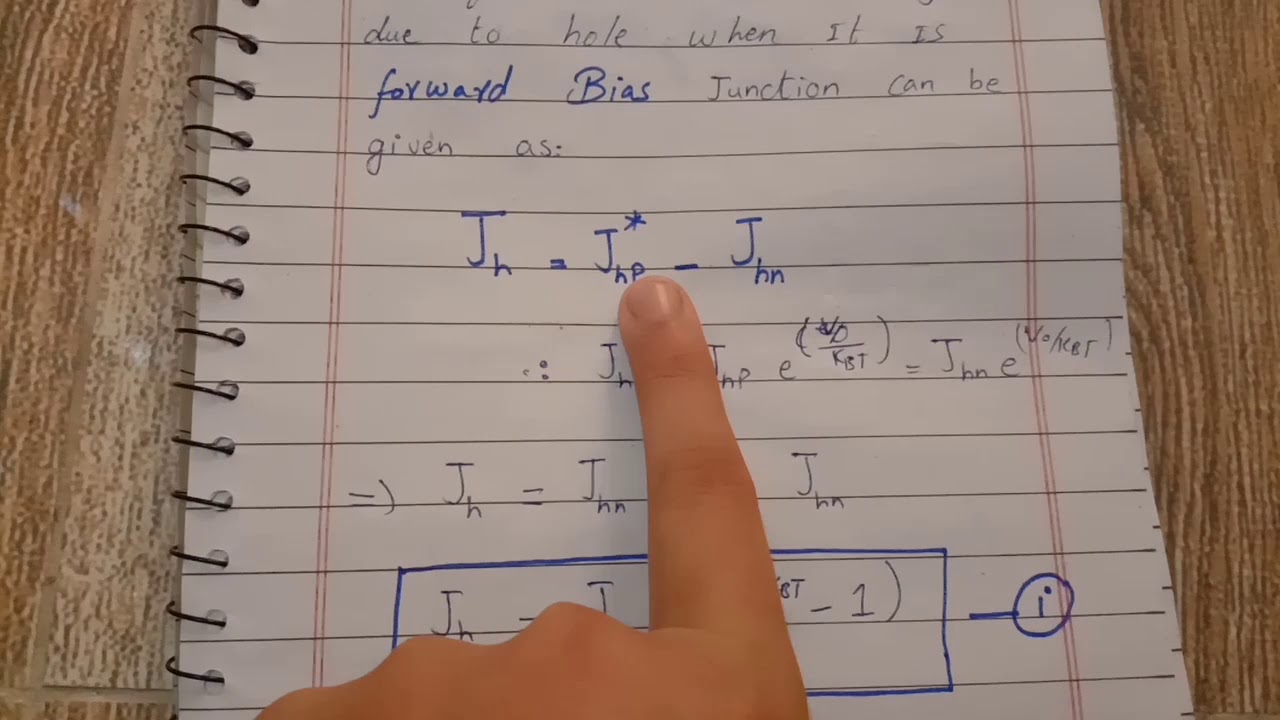 due to hole when It Is
forward Bias Junction can be
given as:
J_h = J_hp^* - J_hn
∴ J_h J_hp e^( /K_BT) = J_hn e^(V_0/K_BT)
=) J_h = J_hn J_hn
J_h = J K_BT - 1) - i